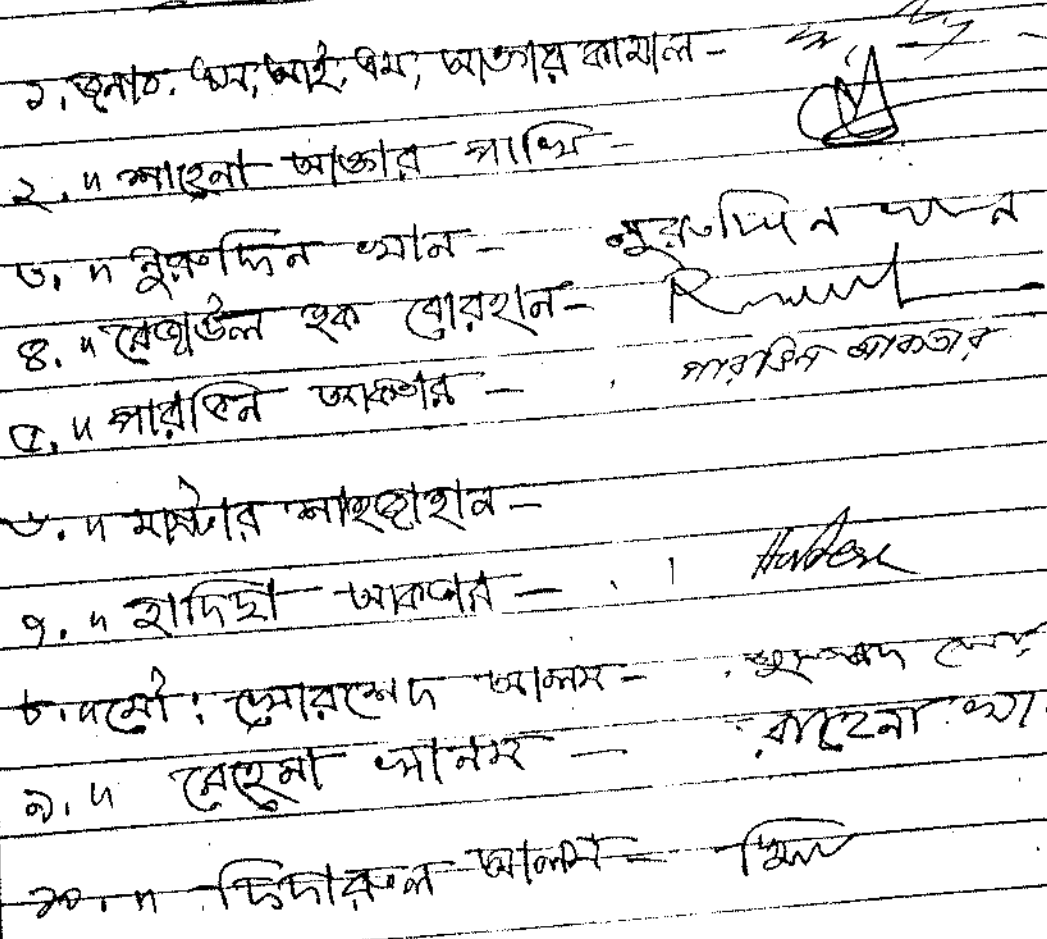 ১. জনাব. এম, আই, এম, আক্তার কামাল -
২. " শাহেনা আক্তার পাখি -
৩. " নুরুদ্দিন খান - নুরুদ্দিন খান
৪. " রেজাউল হক বোরহান -
৫. " পারভিন আকতার - পারভিন আকতার
৬. " মাষ্টার শাহজাহান -
৭. " হাদিছা আকতার -
৮. " মোঃ খোরশেদ আলম -
৯. " রেহেনা খানম - রাহেনা খা
১০. " দিদারুল আলম -